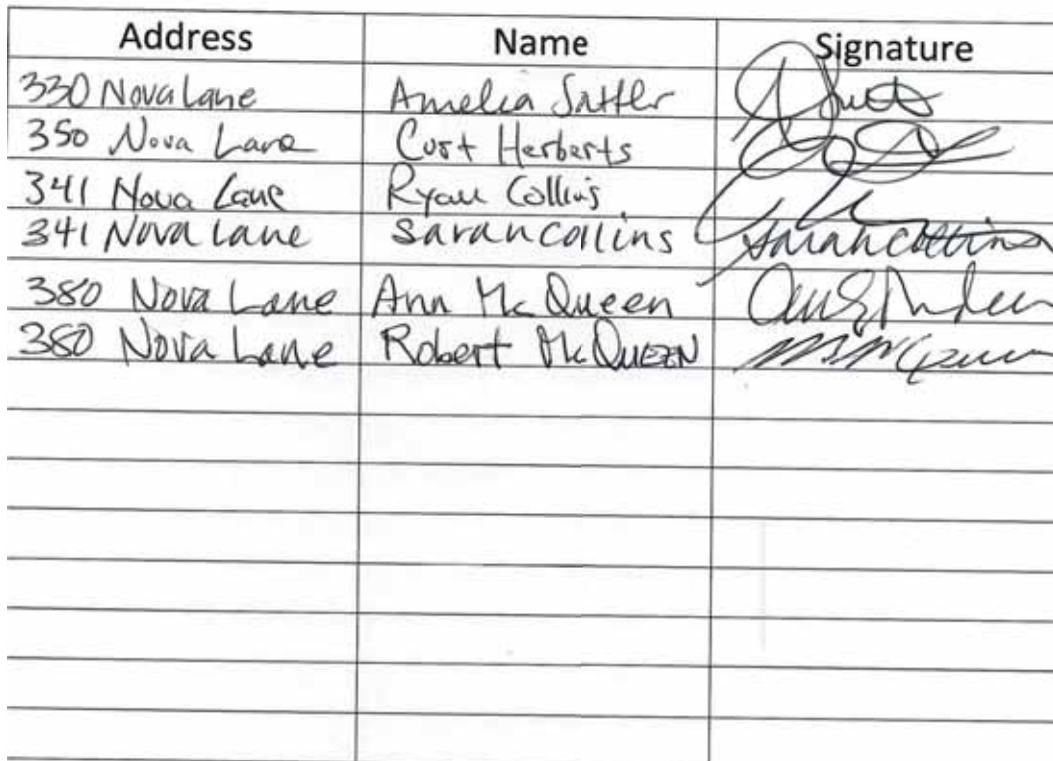 Address Name Signature
330 Nova Lane Amelia Sattler
350 Nova Lane Curt Herberts
341 Nova Lane Ryan Collins
341 Nova Lane Sarah Collins Sarah Collins
380 Nova Lane Ann McQueen
380 Nova Lane Robert McQueen